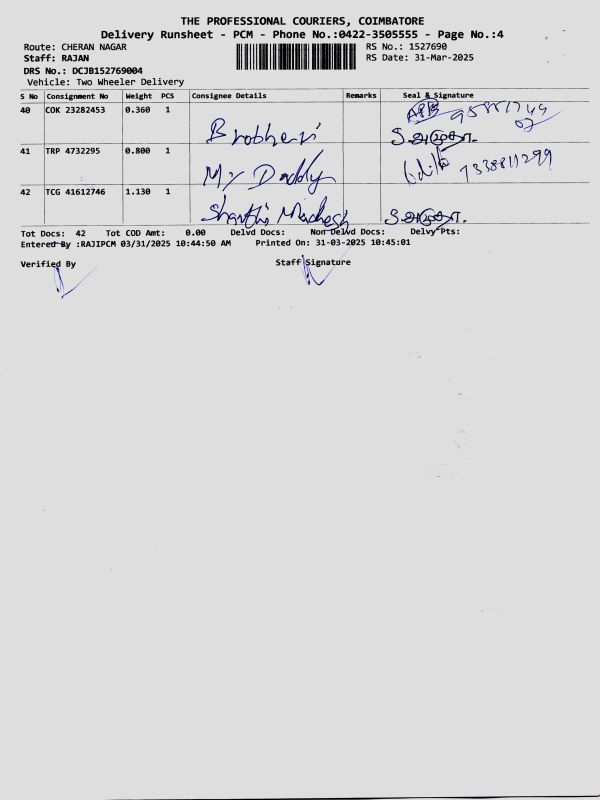 THE PROFESSIONAL COURIERS, COIMBATORE
Delivery Runsheet - PCM - Phone No.:0422-3505555 - Page No.:4
Route: CHERAN NAGAR RS No.: 1527690
Staff: RAJAN RS Date: 31-Mar-2025
DRS No.: DCJB152769004
Vehicle: Two Wheeler Delivery
S No Consignment No Weight PCS Consignee Details Remarks Seal & Signature
40 COK 23282453 0.360 1 Brothers
41 TRP 4732295 0.800 1 My Daddy 7338811299
42 TCG 41612746 1.130 1 Shanthi
Tot Docs: 42 Tot COD Amt: 0.00 Delvd Docs: Non Delvd Docs: Delvy Pts:
Entered By :RAJIPCM 03/31/2025 10:44:50 AM Printed On: 31-03-2025 10:45:01
Verified By Staff Signature